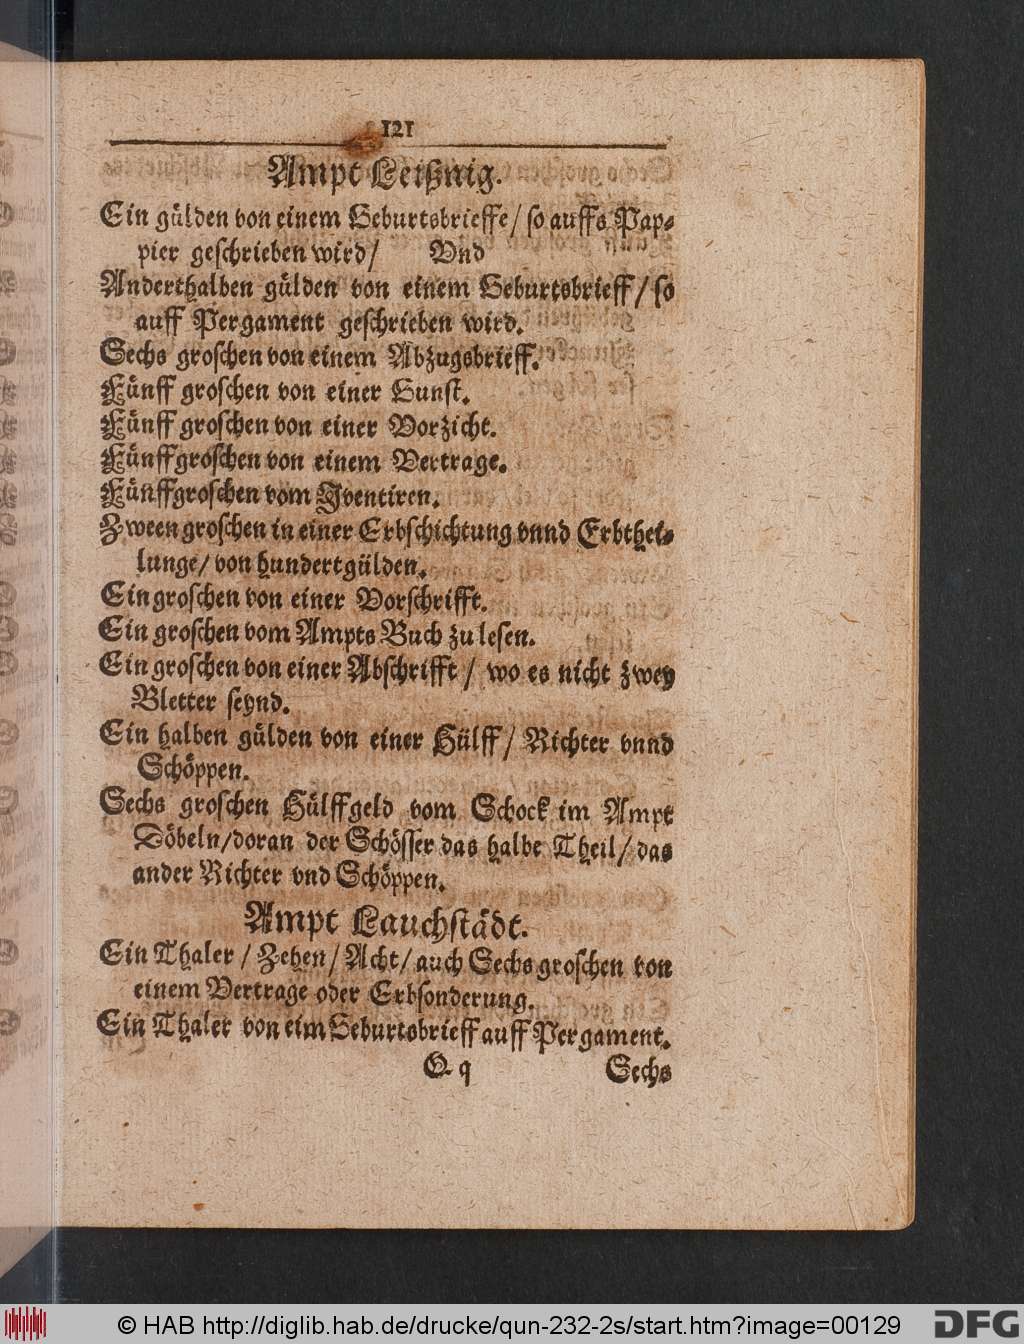 121
Ampt Leißnig.
Ein gülden von einem Geburtsbrieffe / so auffs Pap-
pier geschrieben wird / Vnd
Anderthalben gülden von einem Geburtsbrieff / so
auff Pergament geschrieben wird.
Sechs groschen von einem Abzugsbrieff.
Fünff groschen von einer Gunst.
Fünff groschen von einer Vorzicht.
Fünff groschen von einem Vertrage.
Fünff groschen vom Jventiren.
Zween groschen in einer Erbschichtung vnnd Erbthei-
lunge / von hundert gülden.
Ein groschen von einer Vorschrifft.
Ein groschen vom Ampts Buch zu lesen.
Ein groschen von einer Abschrifft / wo es nicht zwey
Bletter seynd.
Ein halben gülden von einer Hülff / Richter vnnd
Schöppen.
Sechs groschen Hülffgeld vom Schock im Ampt
Döbeln / doran der Schösser das halbe Theil / das
ander Richter vnd Schöppen.
Ampt Lauchstädt.
Ein Thaler / Zehen / Acht / auch Sechs groschen von
einem Vertrage oder Erbsonderung.
Ein Thaler von eim Geburtsbrieff auff Pergament.
Q q Sechs
© HAB http://diglib.hab.de/drucke/qun-232-2s/start.htm?image=00129
DFG